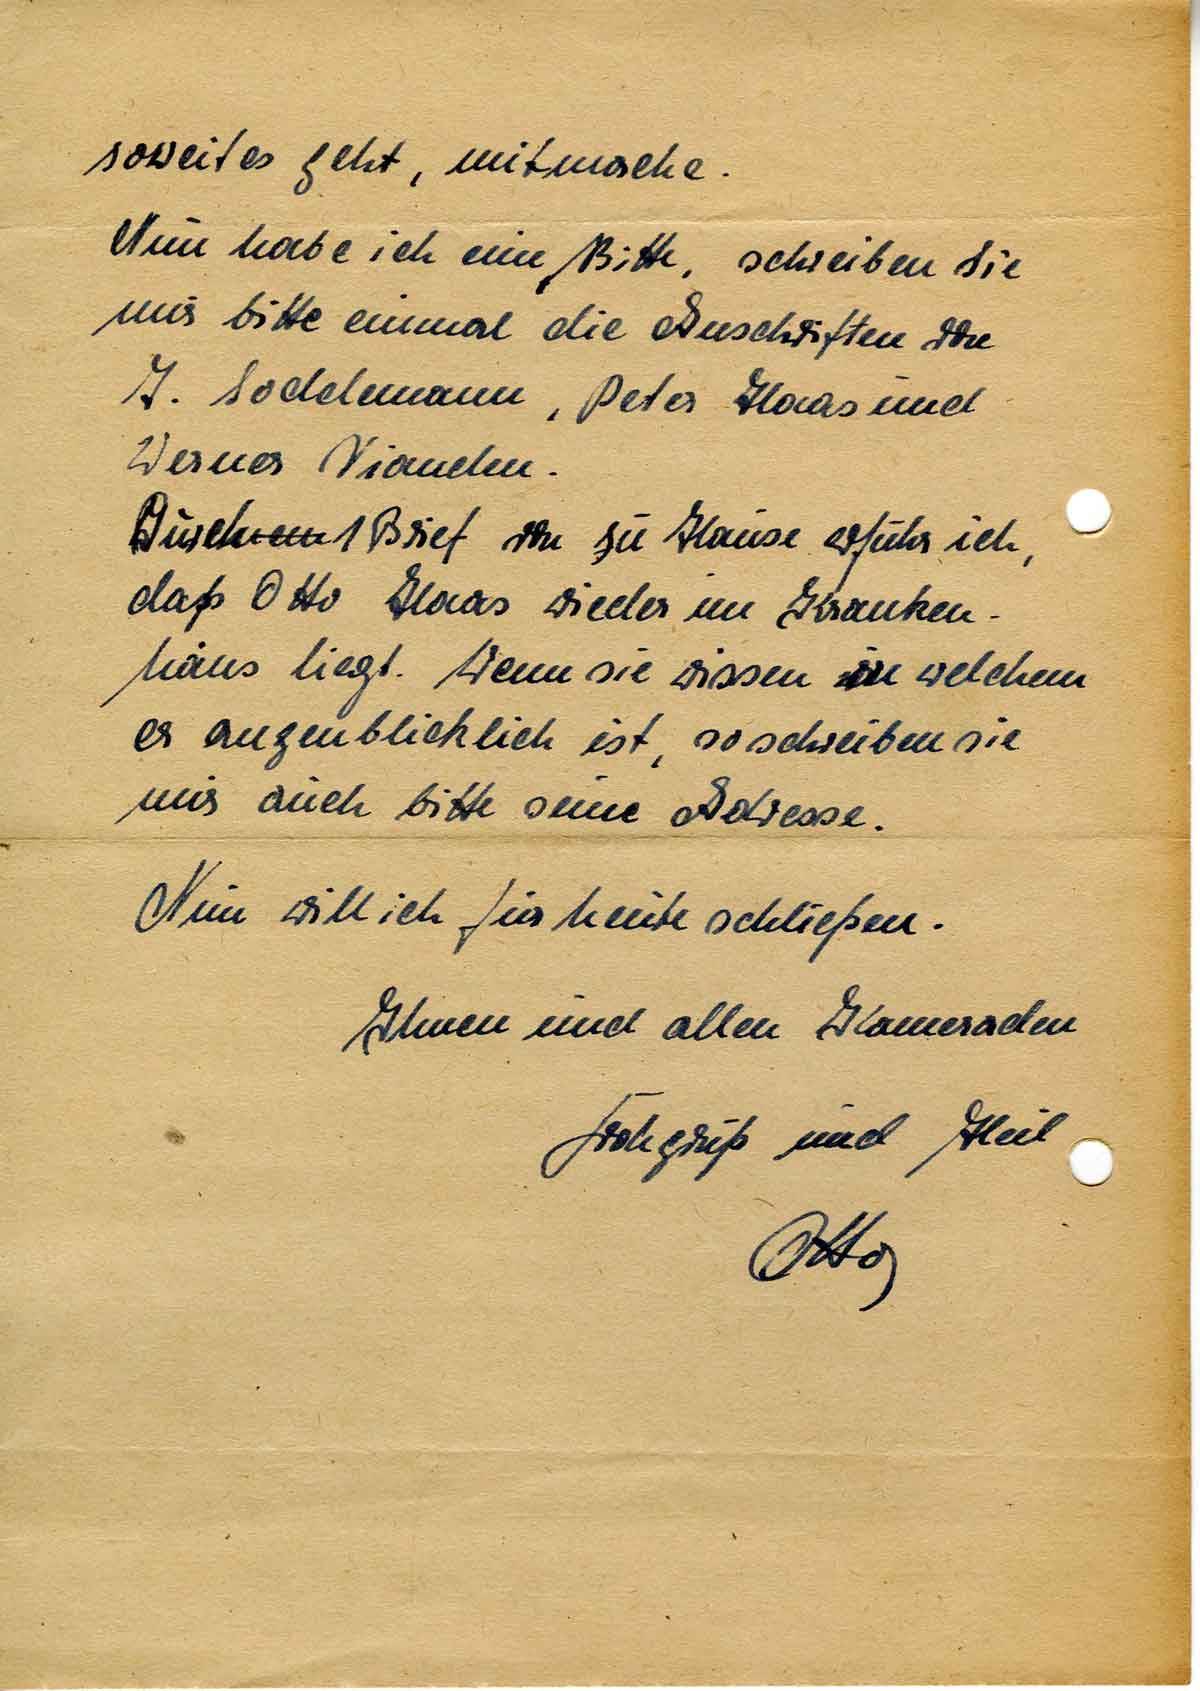 soweit es geht, mitmache.
Nun habe ich eine Bitte, schreiben Sie
mir bitte einmal die Anschriften von
J. Soddemann, Peter Haas und
Werner Vianden.
Durch 1 Brief von zu Hause erfuhr ich,
daß Otto Haas wieder im Kranken-
haus liegt. Wenn sie wissen in welchem
er augenblicklich ist, so schreiben sie
mir auch bitte seine Adresse.
Nun will ich für heute schließen.
Ihnen und allen Kameraden
Frohgruß und Heil
Otto